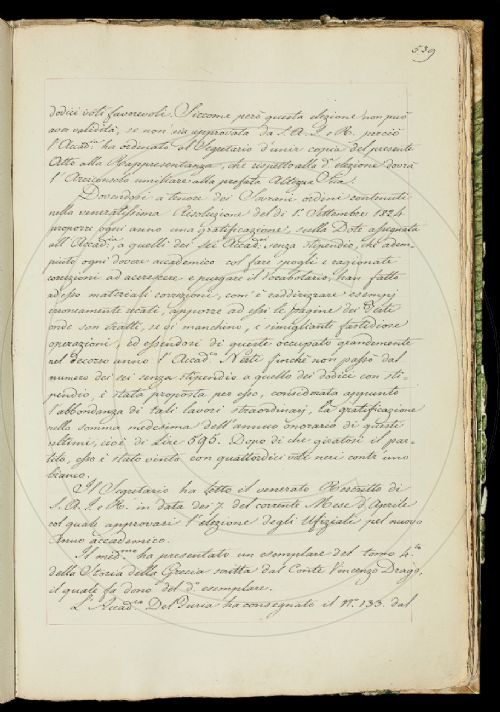 539
dodici voti favorevoli. Siccome però questa elezione non può
aver validità, se non sia approvata da S. A. I. e R. perciò
l'Accad.ia ha ordinato al Segretario d'unir copia del presente
Atto alla Rappresentanza, che rispetto alla d.a elezione dovrà
l'Arciconsolo umiliare alla prefata Altezza Sua.
Dovendosi a tenore dei Sovrani ordini contenuti
nella veneratissima Resoluzione del dì 1.o Settembre 1824
proporre ogni anno una gratificazione sulla Dote assegnata
all'Accad.ia, a quelli dei sei Accad.ci senza stipendio, che adem-
piuto ogni dovere accademico col fare spogli e ragionate
correzioni ad accrescere e purgare il Vocabolario, han fatto
ad esso materiali correzioni, com'è raddirizzare esempj
erroneamente citati, apporre ad essi le pagine dei Testi
onde son tratti, se vi manchino, e simiglianti fastidiose
operazioni; ed essendosi di queste occupato grandemente
nel decorso anno l'Accad.co Nesti finchè non passò dal
numero dei sei senza stipendio a quello dei dodici con sti-
pendio, è stata proposta per esso, considerata appunto
l'abbondanza di tali lavori straordinarj, la gratificazione
nella somma medesima dell'annuo onorario di questi
ultimi, cioè di Lire 595. Dopo di che giratosi il par-
tito, esso è stato vinto con quattordici voti neri contr'uno
bianco.
Il Segretario ha letto il venerato Rescritto di
S. A. I. e R. in data dei 7 del corrente Mese d'Aprile
col quale approvasi l'elezione degli Ufiziali pel nuovo
Anno accademico.
Il med.mo ha presentato un esemplare del tomo 4.to
della Storia della Grecia scritta dal Conte Vincenzo Drago,
il quale fa dono del d.o esemplare.
L'Accad.co Del Furia ha consegnato il N.o 133. dal